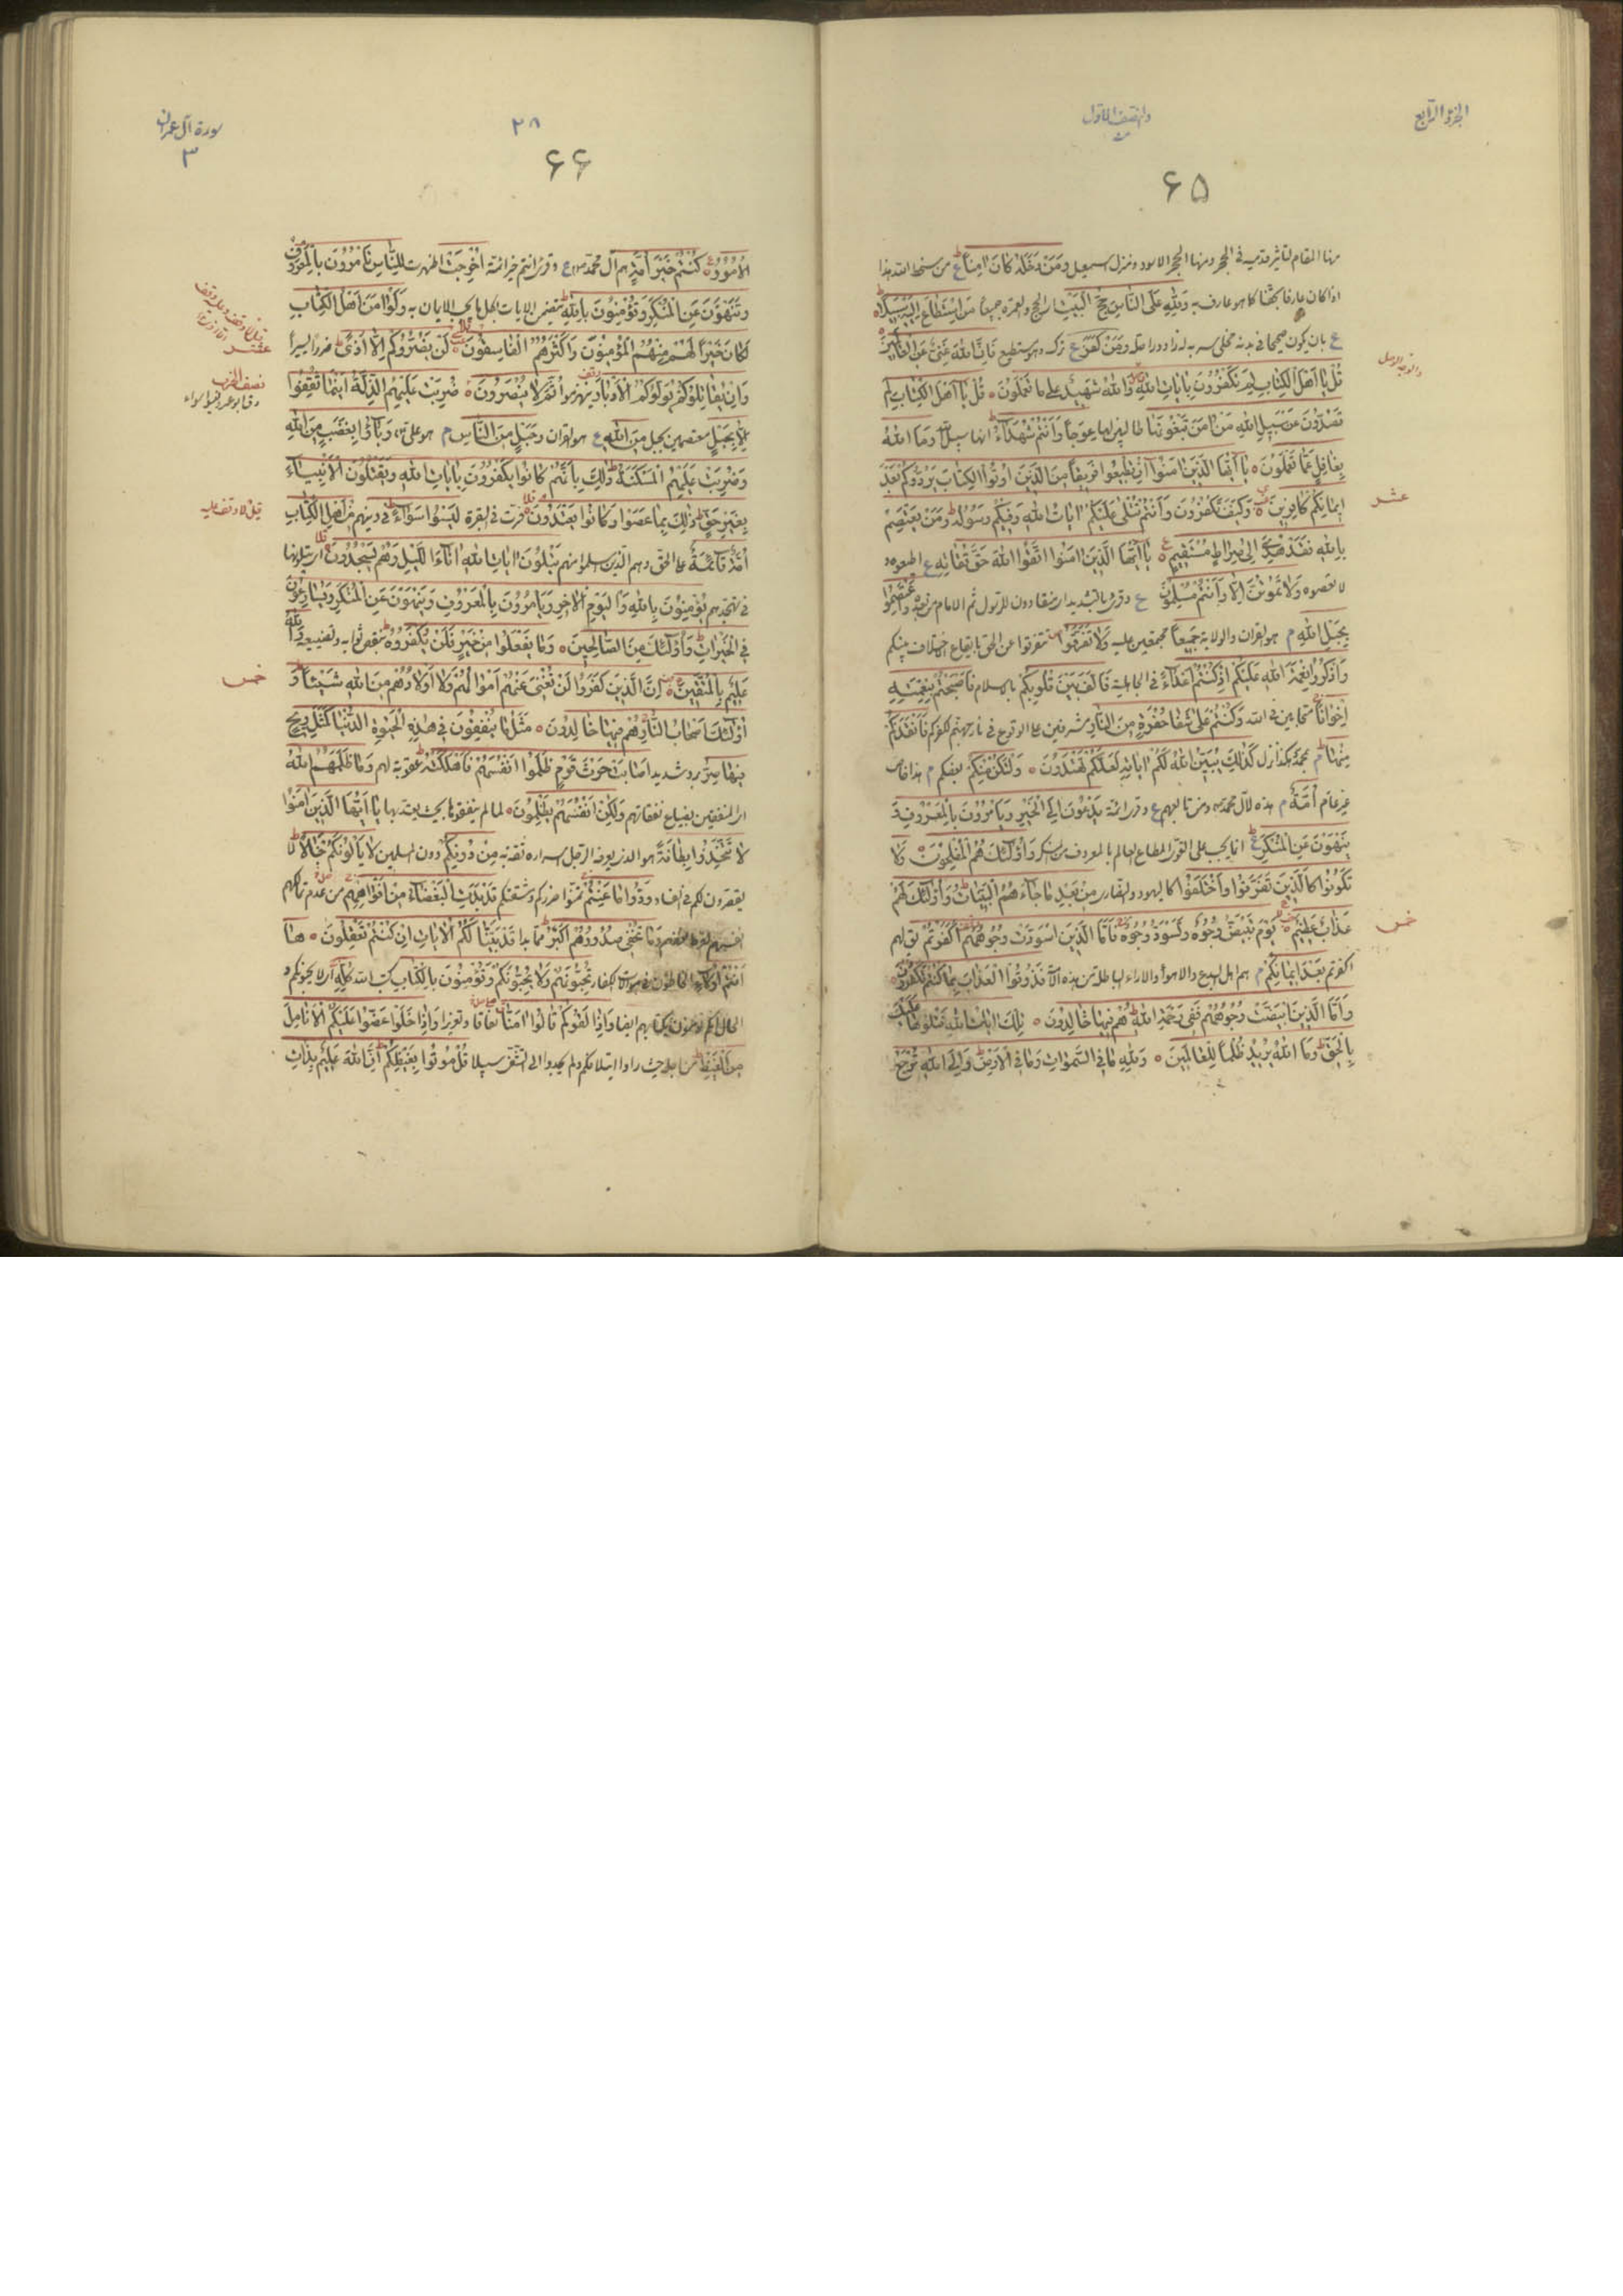 الجزؤ الرابع
والنصف الاول
۶۵
منها المقام لتاثير قدميه في الحجر ومنها الحجر الاسود ومنزل اسمعيل وَمَنْ دَخَلَهُ كَانَ امِناً ع من سخط الله
اذا كان عارفا بحقنا كما هو عارف به وَلِلّهِ عَلَى النَّاسِ حِجُّ الْبَيْتِ الحج والعمرة جميعاً مَنِ اسْتَطَاعَ اِلَيْهِ سَبِيلاً
ع بان يكون صحيحا في بدنه مخلى سربه له زاد وراحلة وَمَنْ كَفَرَ ع ترك وهو مستطيع فَاِنَّ اللهَ غَنِيٌّ عَنِ الْعَالَمِينَ
قُلْ يَا اَهْلَ الْكِتَابِ لِمَ تَكْفُرُونَ بِايَاتِ اللهِ وَاللهُ شَهِيدٌ عَلى مَا تَعْمَلُونَ قُلْ يَا اَهْلَ الْكِتَابِ لِمَ
تَصُدُّونَ عَنْ سَبِيلِ اللهِ مَنْ امَنَ تَبْغُونَهَا طالبين لها عِوَجاً وَاَنْتُمْ شُهَدَاءُ انها سبيل الله وَمَا اللهُ
بِغَافِلٍ عَمَّا تَعْمَلُونَ يَا اَيُّهَا الَّذِينَ امَنُوا اِنْ تُطِيعُوا فَرِيقاً مِنَ الَّذِينَ اُوتُوا الْكِتَابَ يَرُدُّوكُمْ بَعْدَ
عشر
اِيمَانِكُمْ كَافِرِينَ وَكَيْفَ تَكْفُرُونَ وَاَنْتُمْ تُتْلى عَلَيْكُمْ ايَاتُ اللهِ وَفِيكُمْ رَسُولُهُ وَمَنْ يَعْتَصِمْ
بِاللهِ فَقَدْ هُدِيَ اِلى صِرَاطٍ مُسْتَقِيمٍ يَا اَيُّهَا الَّذِينَ امَنُوا اتَّقُوا اللهَ حَقَّ تُقَاتِهِ ع اطيعوه و
لا تعصوه وَلا تَمُوتُنَّ اِلاّ وَاَنْتُمْ مُسْلِمُونَ ع وقرئ بالتشديد اى منقادون للرسول ثم الامام من بعده وَاعْتَصِمُوا
بِحَبْلِ اللهِ م هو القران والولاية جَمِيعاً مجتمعين عليه وَلا تَفَرَّقُوا تتفرقوا عن الحق بايقاع اختلاف بينكم
وَاذْكُرُوا نِعْمَةَ اللهِ عَلَيْكُمْ اِذْ كُنْتُمْ اَعْدَاءً في الجاهلية فَاَلَّفَ بَيْنَ قُلُوبِكُمْ بالاسلام فَاَصْبَحْتُمْ بِنِعْمَتِهِ
اِخْوَاناً متحابين في الله وَكُنْتُمْ عَلى شَفَا حُفْرَةٍ مِنَ النَّارِ مشرفين على الوقوع في نار جهنم لكفركم فَاَنْقَذَكُمْ
مِنْهَا م بمحمد هكذا نزل كَذلِكَ يُبَيِّنُ اللهُ لَكُمْ ايَاتِهِ لَعَلَّكُمْ تَهْتَدُونَ وَلْتَكُنْ مِنْكُمْ بعضكم م هذا خاص
غير عام اُمَّةٌ م هذه لال محمد ومن تابعهم ع وقرئ ائمة يَدْعُونَ اِلَى الْخَيْرِ وَيَاْمُرُونَ بِالْمَعْرُوفِ وَ
يَنْهَوْنَ عَنِ الْمُنْكَرِ ع انما يجب على القوى المطاع العالم بالمعروف من المنكر وَاُولئِكَ هُمُ الْمُفْلِحُونَ وَلا
تَكُونُوا كَالَّذِينَ تَفَرَّقُوا وَاخْتَلَفُوا كاليهود والنصارى مِنْ بَعْدِ مَا جَاءَهُمُ الْبَيِّنَاتُ وَاُولئِكَ لَهُمْ
خمس
عَذَابٌ عَظِيمٌ يَوْمَ تَبْيَضُّ وُجُوهٌ وَتَسْوَدُّ وُجُوهٌ فَاَمَّا الَّذِينَ اسْوَدَّتْ وُجُوهُهُمْ اَكَفَرْتُمْ يقال لهم
اكفرتم بَعْدَ اِيمَانِكُمْ م هم اهل البدع والاهواء والاراء الباطلة من هذه الامة فَذُوقُوا الْعَذَابَ بِمَا كُنْتُمْ تَكْفُرُونَ
وَاَمَّا الَّذِينَ ابْيَضَّتْ وُجُوهُهُمْ فَفِي رَحْمَةِ اللهِ هُمْ فِيهَا خَالِدُونَ تِلْكَ ايَاتُ اللهِ نَتْلُوهَا عَلَيْكَ
بِالْحَقِّ وَمَا اللهُ يُرِيدُ ظُلْماً لِلْعَالَمِينَ وَلِلّهِ مَا فِي السَّموَاتِ وَمَا فِي الْاَرْضِ وَاِلَى اللهِ تُرْجَعُ
سورة آل عمران
۳
۲۸
۶۶
الْاُمُورُ كُنْتُمْ خَيْرَ اُمَّةٍ هم آل محمد ع وقرئ انتم خير ائمة اُخْرِجَتْ اظهرت لِلنَّاسِ تَاْمُرُونَ بِالْمَعْرُوفِ
وَتَنْهَوْنَ عَنِ الْمُنْكَرِ وَتُؤْمِنُونَ بِاللهِ يتضمن الايمان بكل ما يجب الايمان به وَلَوْ امَنَ اَهْلُ الْكِتَابِ
عشر
لَكَانَ خَيْراً لَهُمْ مِنْهُمُ الْمُؤْمِنُونَ وَاَكْثَرُهُمُ الْفَاسِقُونَ لَنْ يَضُرُّوكُمْ اِلاّ اَذىً ضررا يسيراً
نصف الحزب
وَاِنْ يُقَاتِلُوكُمْ يُوَلُّوكُمُ الْاَدْبَارَ ينهزموا ثُمَّ لا يُنْصَرُونَ ضُرِبَتْ عَلَيْهِمُ الذِّلَّةُ اَيْنَمَا ثُقِفُوا
اِلاّ بِحَبْلٍ معتصمين بحبل مِنَ اللهِ ع هو القران وَحَبْلٍ مِنَ النَّاسِ م هو علي وَبَاؤُا بِغَضَبٍ مِنَ اللهِ
وَضُرِبَتْ عَلَيْهِمُ الْمَسْكَنَةُ ذلِكَ بِاَنَّهُمْ كَانُوا يَكْفُرُونَ بِايَاتِ اللهِ وَيَقْتُلُونَ الْاَنْبِيَاءَ
بِغَيْرِ حَقٍّ ذلِكَ بِمَا عَصَوْا وَكَانُوا يَعْتَدُونَ فسرت في البقرة لَيْسُوا سَوَاءً في دينهم مِنْ اَهْلِ الْكِتَابِ
اُمَّةٌ قَائِمَةٌ على الحق وهم الذين اسلموا منهم يَتْلُونَ ايَاتِ اللهِ انَاءَ اللَّيْلِ وَهُمْ يَسْجُدُونَ اى يتلونها
في تهجدهم يُؤْمِنُونَ بِاللهِ وَالْيَوْمِ الْاخِرِ وَيَاْمُرُونَ بِالْمَعْرُوفِ وَيَنْهَوْنَ عَنِ الْمُنْكَرِ وَيُسَارِعُونَ
فِي الْخَيْرَاتِ وَاُولئِكَ مِنَ الصَّالِحِينَ وَمَا يَفْعَلُوا مِنْ خَيْرٍ فَلَنْ يُكْفَرُوهُ بنقص ثوابه وتضييعه وَاللهُ
خمس
عَلِيمٌ بِالْمُتَّقِينَ اِنَّ الَّذِينَ كَفَرُوا لَنْ تُغْنِيَ عَنْهُمْ اَمْوَالُهُمْ وَلا اَوْلادُهُمْ مِنَ اللهِ شَيْئاً وَ
اُولئِكَ اَصْحَابُ النَّارِ هُمْ فِيهَا خَالِدُونَ مَثَلُ مَا يُنْفِقُونَ فِي هذِهِ الْحَيوةِ الدُّنْيَا كَمَثَلِ رِيحٍ
فِيهَا صِرٌّ برد شديد اَصَابَتْ حَرْثَ قَوْمٍ ظَلَمُوا اَنْفُسَهُمْ فَاَهْلَكَتْهُ عقوبة لهم وَمَا ظَلَمَهُمُ اللهُ
اى المنفقين بضياع نفقاتهم وَلكِنْ اَنْفُسَهُمْ يَظْلِمُونَ لما لم ينفقوها بحيث يعتد بها يَا اَيُّهَا الَّذِينَ امَنُوا
لا تَتَّخِذُوا بِطَانَةً هو الذي يعرفه الرجل اسراره ثقة به مِنْ دُونِكُمْ دون المسلمين لا يَاْلُونَكُمْ خَبَالاً لا
يقصرون لكم في الفساد وَدُّوا مَا عَنِتُّمْ تمنوا ضرركم ومشقتكم قَدْ بَدَتِ الْبَغْضَاءُ مِنْ اَفْوَاهِهِمْ من عدم تمالكهم
انفسهم لفرط بغضهم وَمَا تُخْفِي صُدُورُهُمْ اَكْبَرُ مما بدا قَدْ بَيَّنَّا لَكُمُ الْايَاتِ اِنْ كُنْتُمْ تَعْقِلُونَ هَا
اَنْتُمْ اُولاءِ الخاطئون في موالاة الكفار تُحِبُّونَهُمْ وَلا يُحِبُّونَكُمْ وَتُؤْمِنُونَ بِالْكِتَابِ كتب الله كُلِّهِ اى لا يحبونكم و
الحال انكم تؤمنون بكتابهم ايضا وَاِذَا لَقُوكُمْ قَالُوا امَنَّا نفاقا وتغريرا وَاِذَا خَلَوْا عَضُّوا عَلَيْكُمُ الْاَنَامِلَ
مِنَ الْغَيْظِ من اجله حيث راوا ائتلافكم ولم يجدوا الى التشفي سبيلا قُلْ مُوتُوا بِغَيْظِكُمْ اِنَّ اللهَ عَلِيمٌ بِذَاتِ